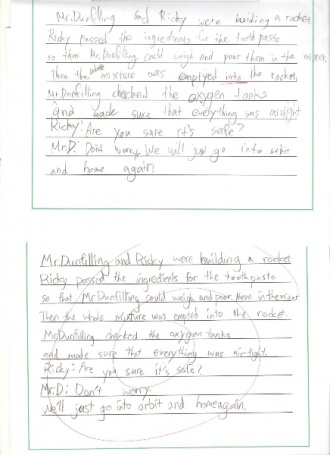 Mr.Dunfilling and Ricky were building a rocket
Ricky passed the ingredients for the tooth paste
so that Mr.Dunfilling could weigh and pour them in the mixer
Then the whole mixture was emptyed into the rocket
Mr.Dunfilling checked the oxygen tanks
and made sure that everything was airtight
Ricky: Are you sure it's safe?
Mr.D: Dont worry. We will just go into orbit
and home again
Mr.Dunfilling and Ricky were building a rocket
Ricky passed the ingredients for the toothpaste
so that Mr.Dunfilling could weigh and poor them in the mixer
Then the whole mixture was emptied into the rocket.
Mr.Dunfilling checked the oxygen tanks
and made sure that everything was airtight.
Ricky: Are you sure it's safe?
Mr.D: Don't worry.
we'll just go into orbit and home again.